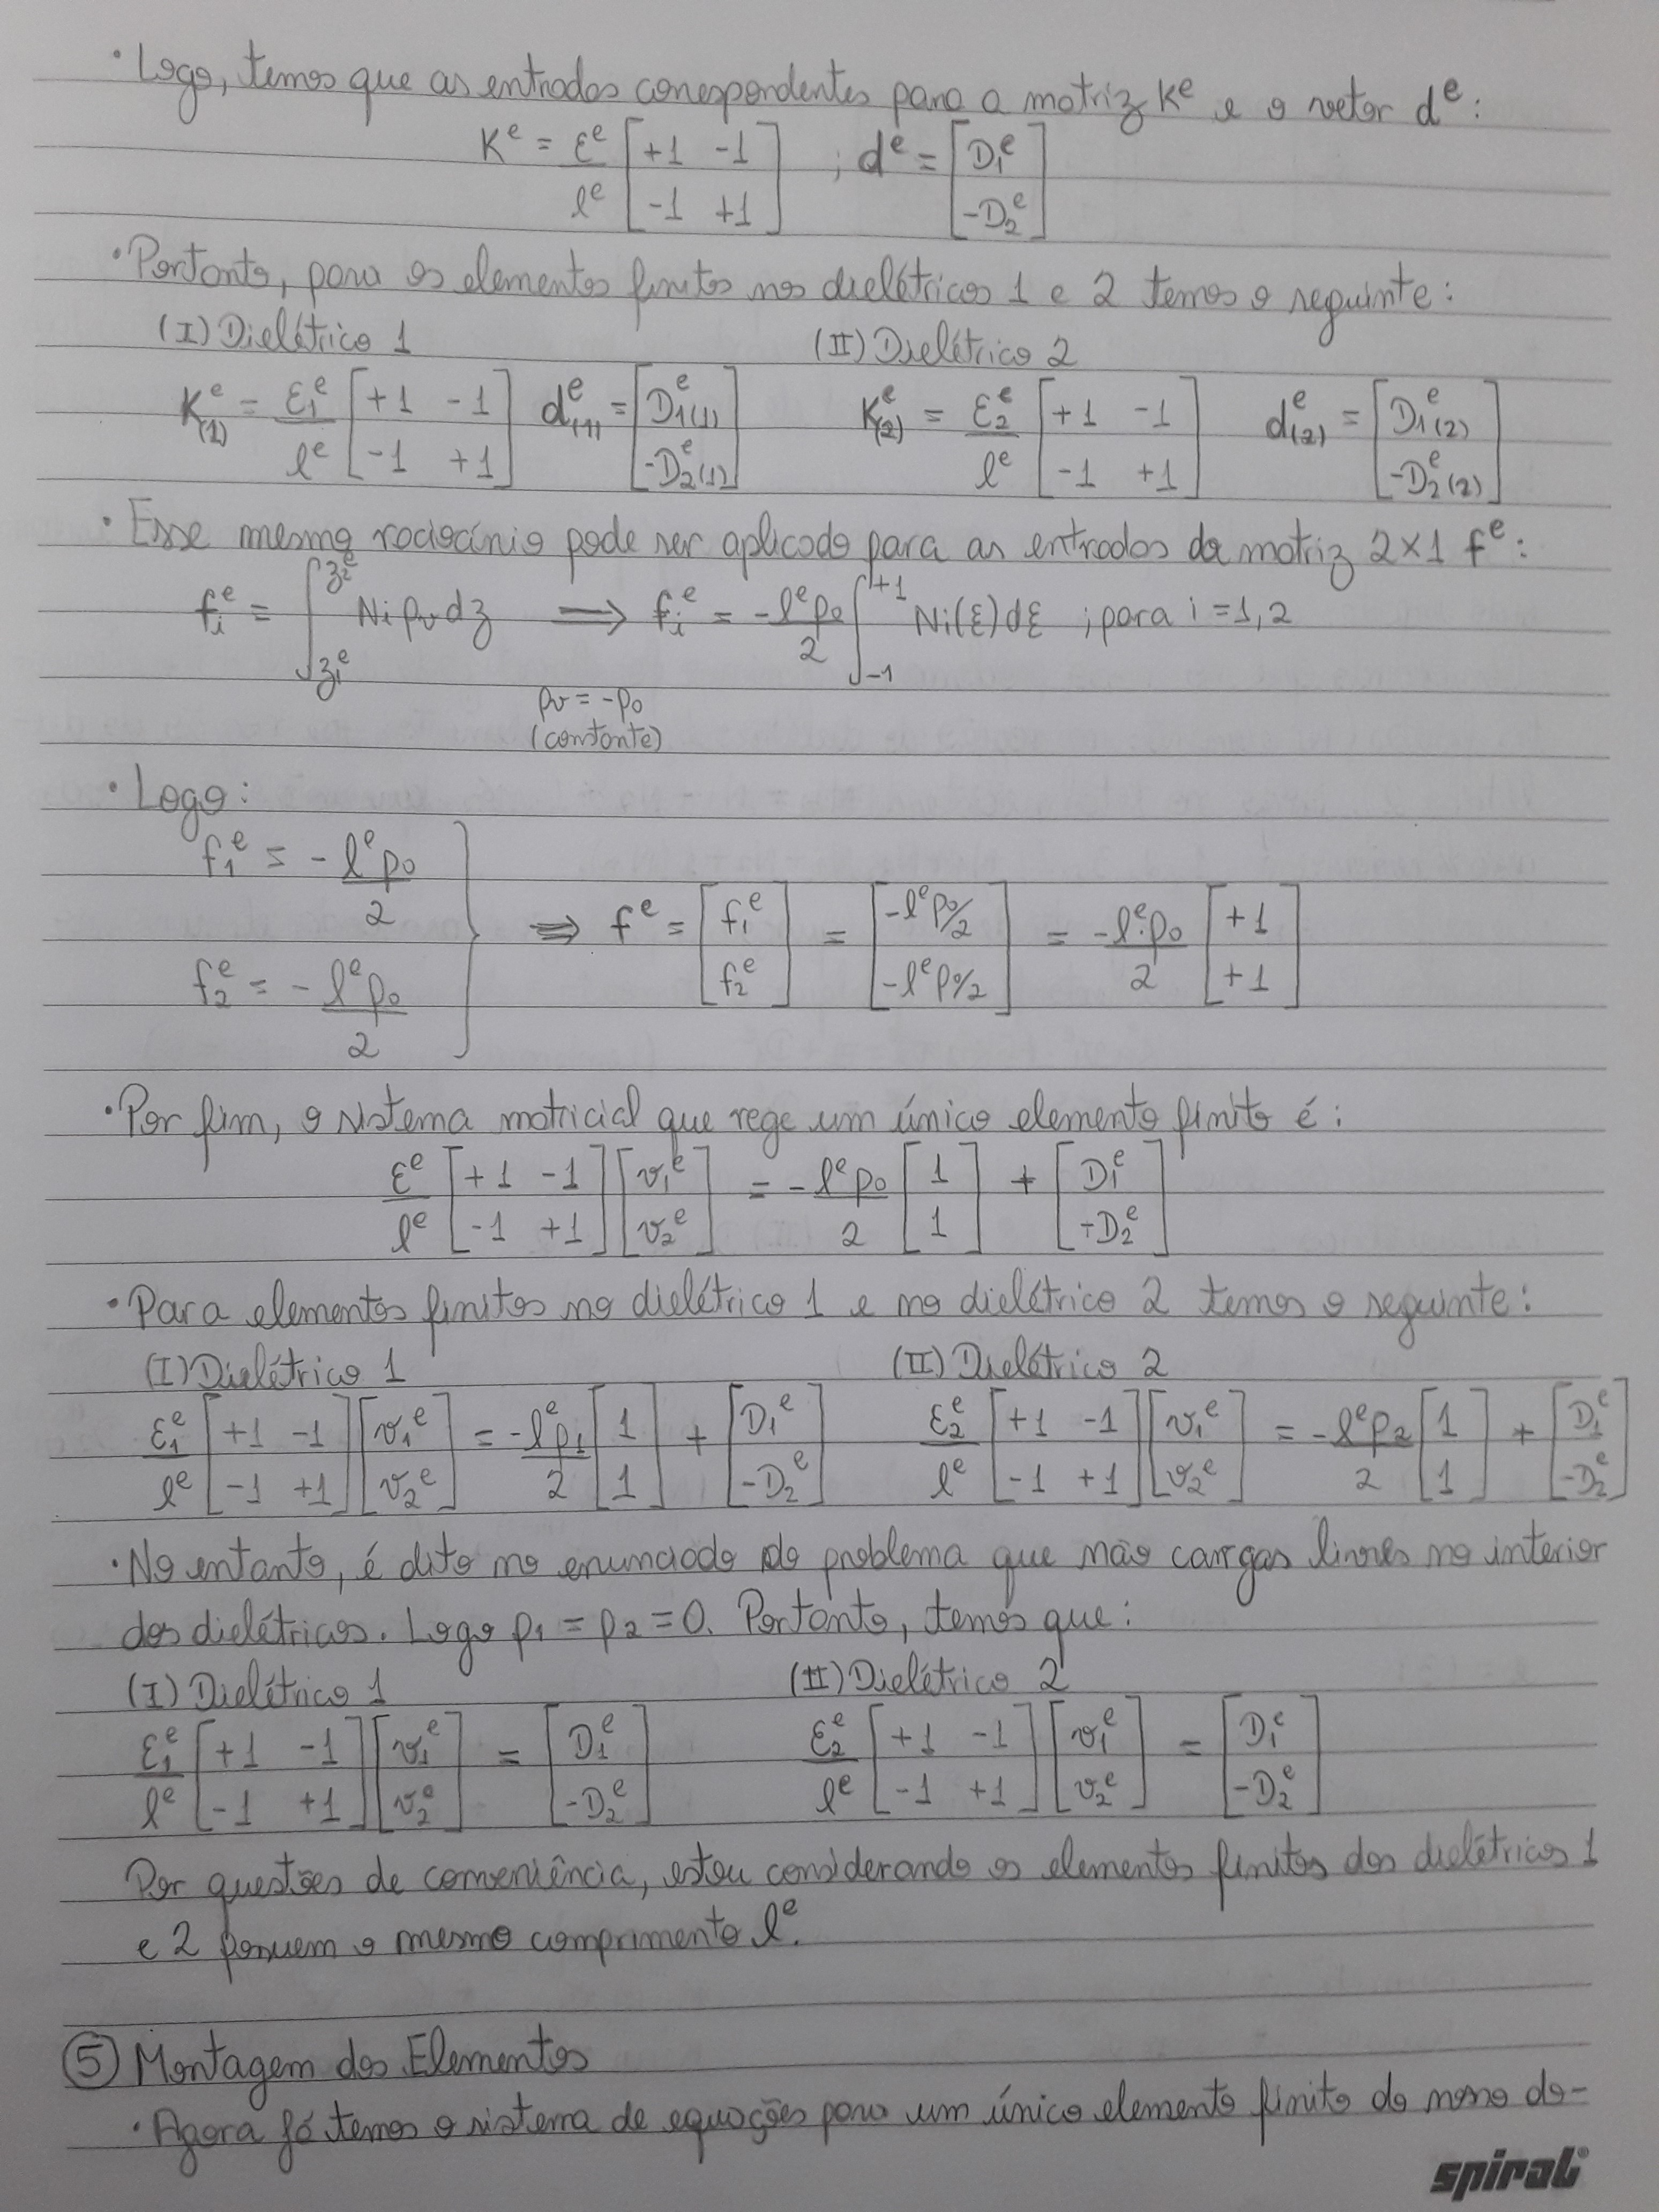 • Logo, temos que as entradas correspondentes para a matriz K^e e o vetor d^e :
K^e = ε^e/l^e [+1 -1; -1 +1] ; d^e = [D₁^e; -D₂^e]
• Portanto, para os elementos finitos nos dielétricos 1 e 2 temos o seguinte:
(I) Dielétrico 1 (II) Dielétrico 2
K^e_(1) = ε₁^e/l^e [+1 -1; -1 +1] d^e_(1) = [D^e_1(1); -D^e_2(1)] K^e_(2) = ε₂^e/l^e [+1 -1; -1 +1] d^e_(2) = [D^e_1(2); -D^e_2(2)]
• Esse mesmo raciocínio pode ser aplicado para as entradas da matriz 2×1 f^e :
f_i^e = ∫_{z₁^e}^{z₂^e} Ni ρv dz ⟹ f_i^e = -l^e ρ₀/2 ∫_{-1}^{+1} Ni(ξ)dξ ; para i = 1, 2
ρv = -ρ₀
(constante)
• Logo:
f₁^e = - l^e ρ₀/2
f₂^e = - l^e ρ₀/2
⇒ f^e = [f₁^e; f₂^e] = [-l^e ρ₀/2; -l^e ρ₀/2] = -l^e.ρ₀/2 [+1; +1]
• Por fim, o sistema matricial que rege um único elemento finito é:
ε^e/l^e [+1 -1; -1 +1] [v₁^e; v₂^e] = - l^e ρ₀/2 [1; 1] + [D₁^e; -D₂^e]
• Para elementos finitos no dielétrico 1 e no dielétrico 2 temos o seguinte:
(I) Dielétrico 1 (II) Dielétrico 2
ε₁^e/l^e [+1 -1; -1 +1] [v₁^e; v₂^e] = -l^e ρ₁/2 [1; 1] + [D₁^e; -D₂^e] ε₂^e/l^e [+1 -1; -1 +1] [v₁^e; v₂^e] = -l^e ρ₂/2 [1; 1] + [D₁^e; -D₂^e]
• No entanto, é dito no enunciado do problema que não cargas livres no interior
dos dielétricos. Logo ρ₁ = ρ₂ = 0. Portanto, temos que:
(I) Dielétrico 1 (II) Dielétrico 2
ε₁^e/l^e [+1 -1; -1 +1] [v₁^e; v₂^e] = [D₁^e; -D₂^e] ε₂^e/l^e [+1 -1; -1 +1] [v₁^e; v₂^e] = [D₁^e; -D₂^e]
Por questões de conveniência, estou considerando os elementos finitos dos dielétricos 1
e 2 possuem o mesmo comprimento l^e.
⑤ Montagem dos Elementos
• Agora já temos o sistema de equações para um único elemento finito do nosso do-
spiral®